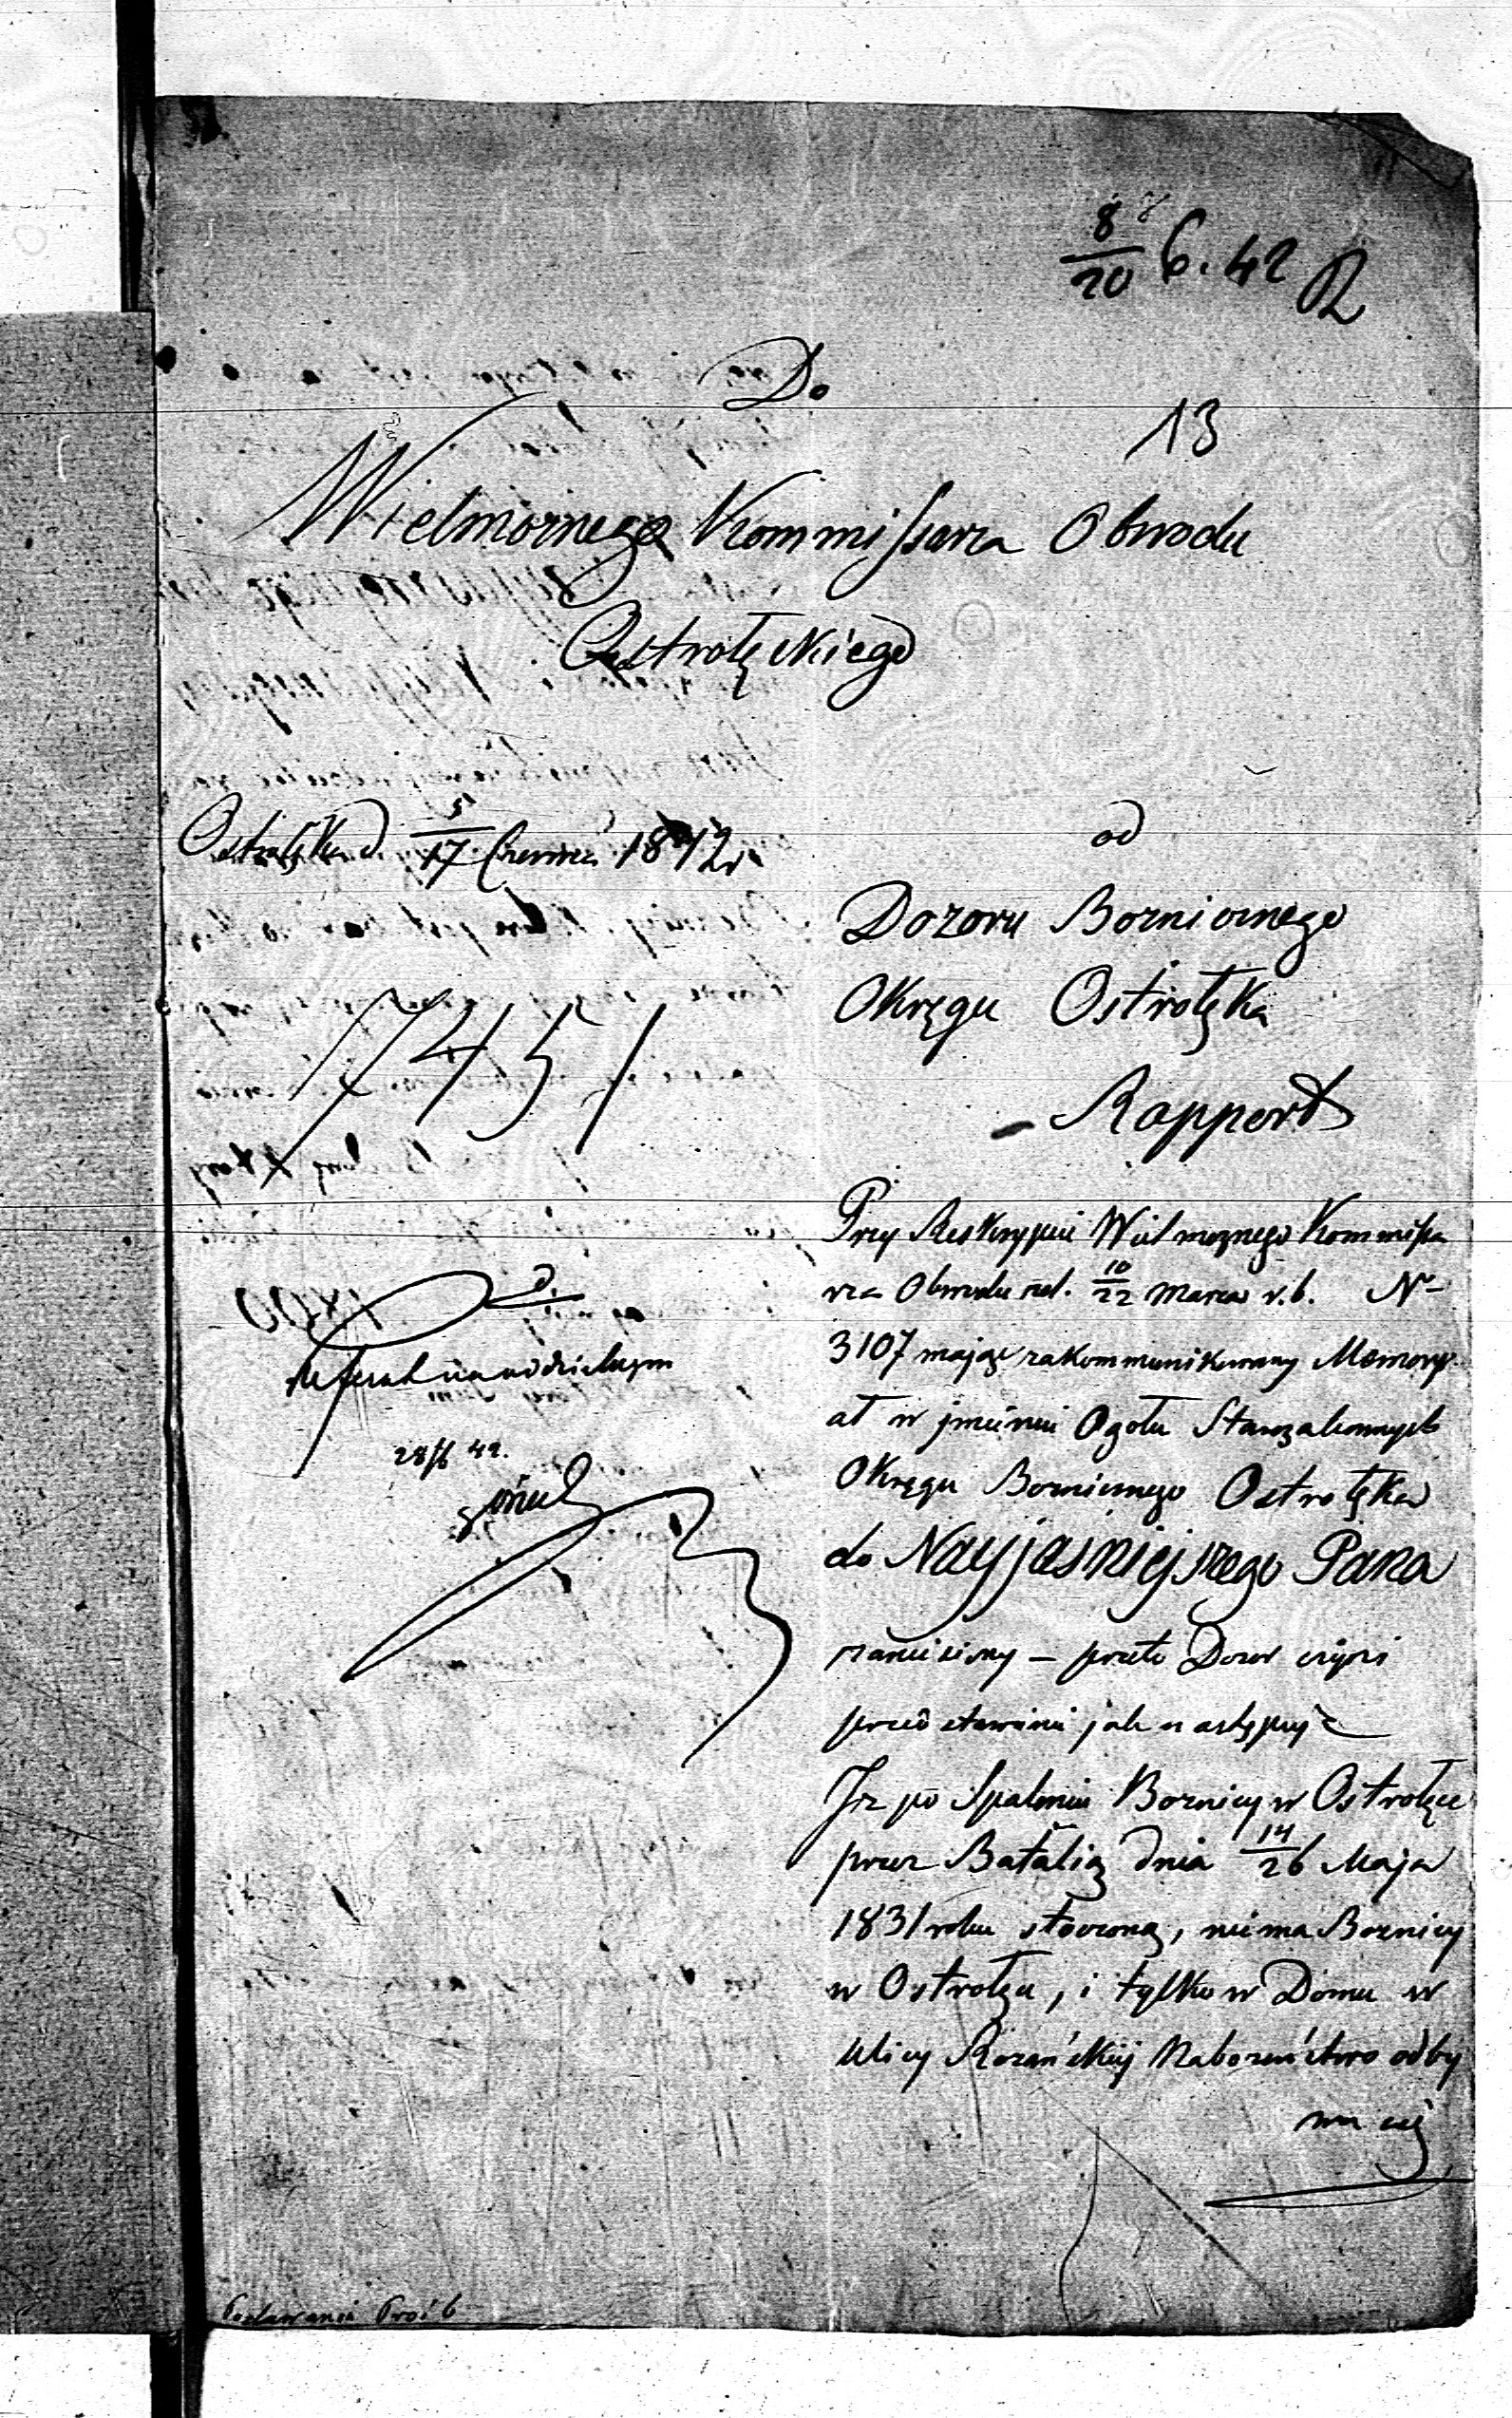 8/20 6. 42
13
Do
Wielmożnego Kommissarza Obwodu
Ostrołęckiego
Ostrołęka d 5/17 Czerwca 1842 r.
od
Dozoru Bożnicznego
Okręgu Ostrołęka
Rapport
7451
Przy Reskrypcie Wielmożnego Kommissa
rza Obwodu zd. 10/22 Marca r.b. No
3107 mając zakommunikowany Memory
ał w jmieniu Ogółu Starozakonnych
Okręgu Bożnicznego Ostrołęka
do Nayjaśniejszego Pana
zaniesiony – przeto Dozor
przedstawienie jak następuje
Jż po Spaleniu Bożnicy w Ostrołęce
przez Batalią dnia 14/26 Maja
1831 roku stoczoną, niema Bożnicy
w Ostrołęce, i tylko w Domu w
Ulicy Rożańskiej Nabożeństwo odby
wa się
Referat na oddzielnym
28/6 42.
Podawania Proźb